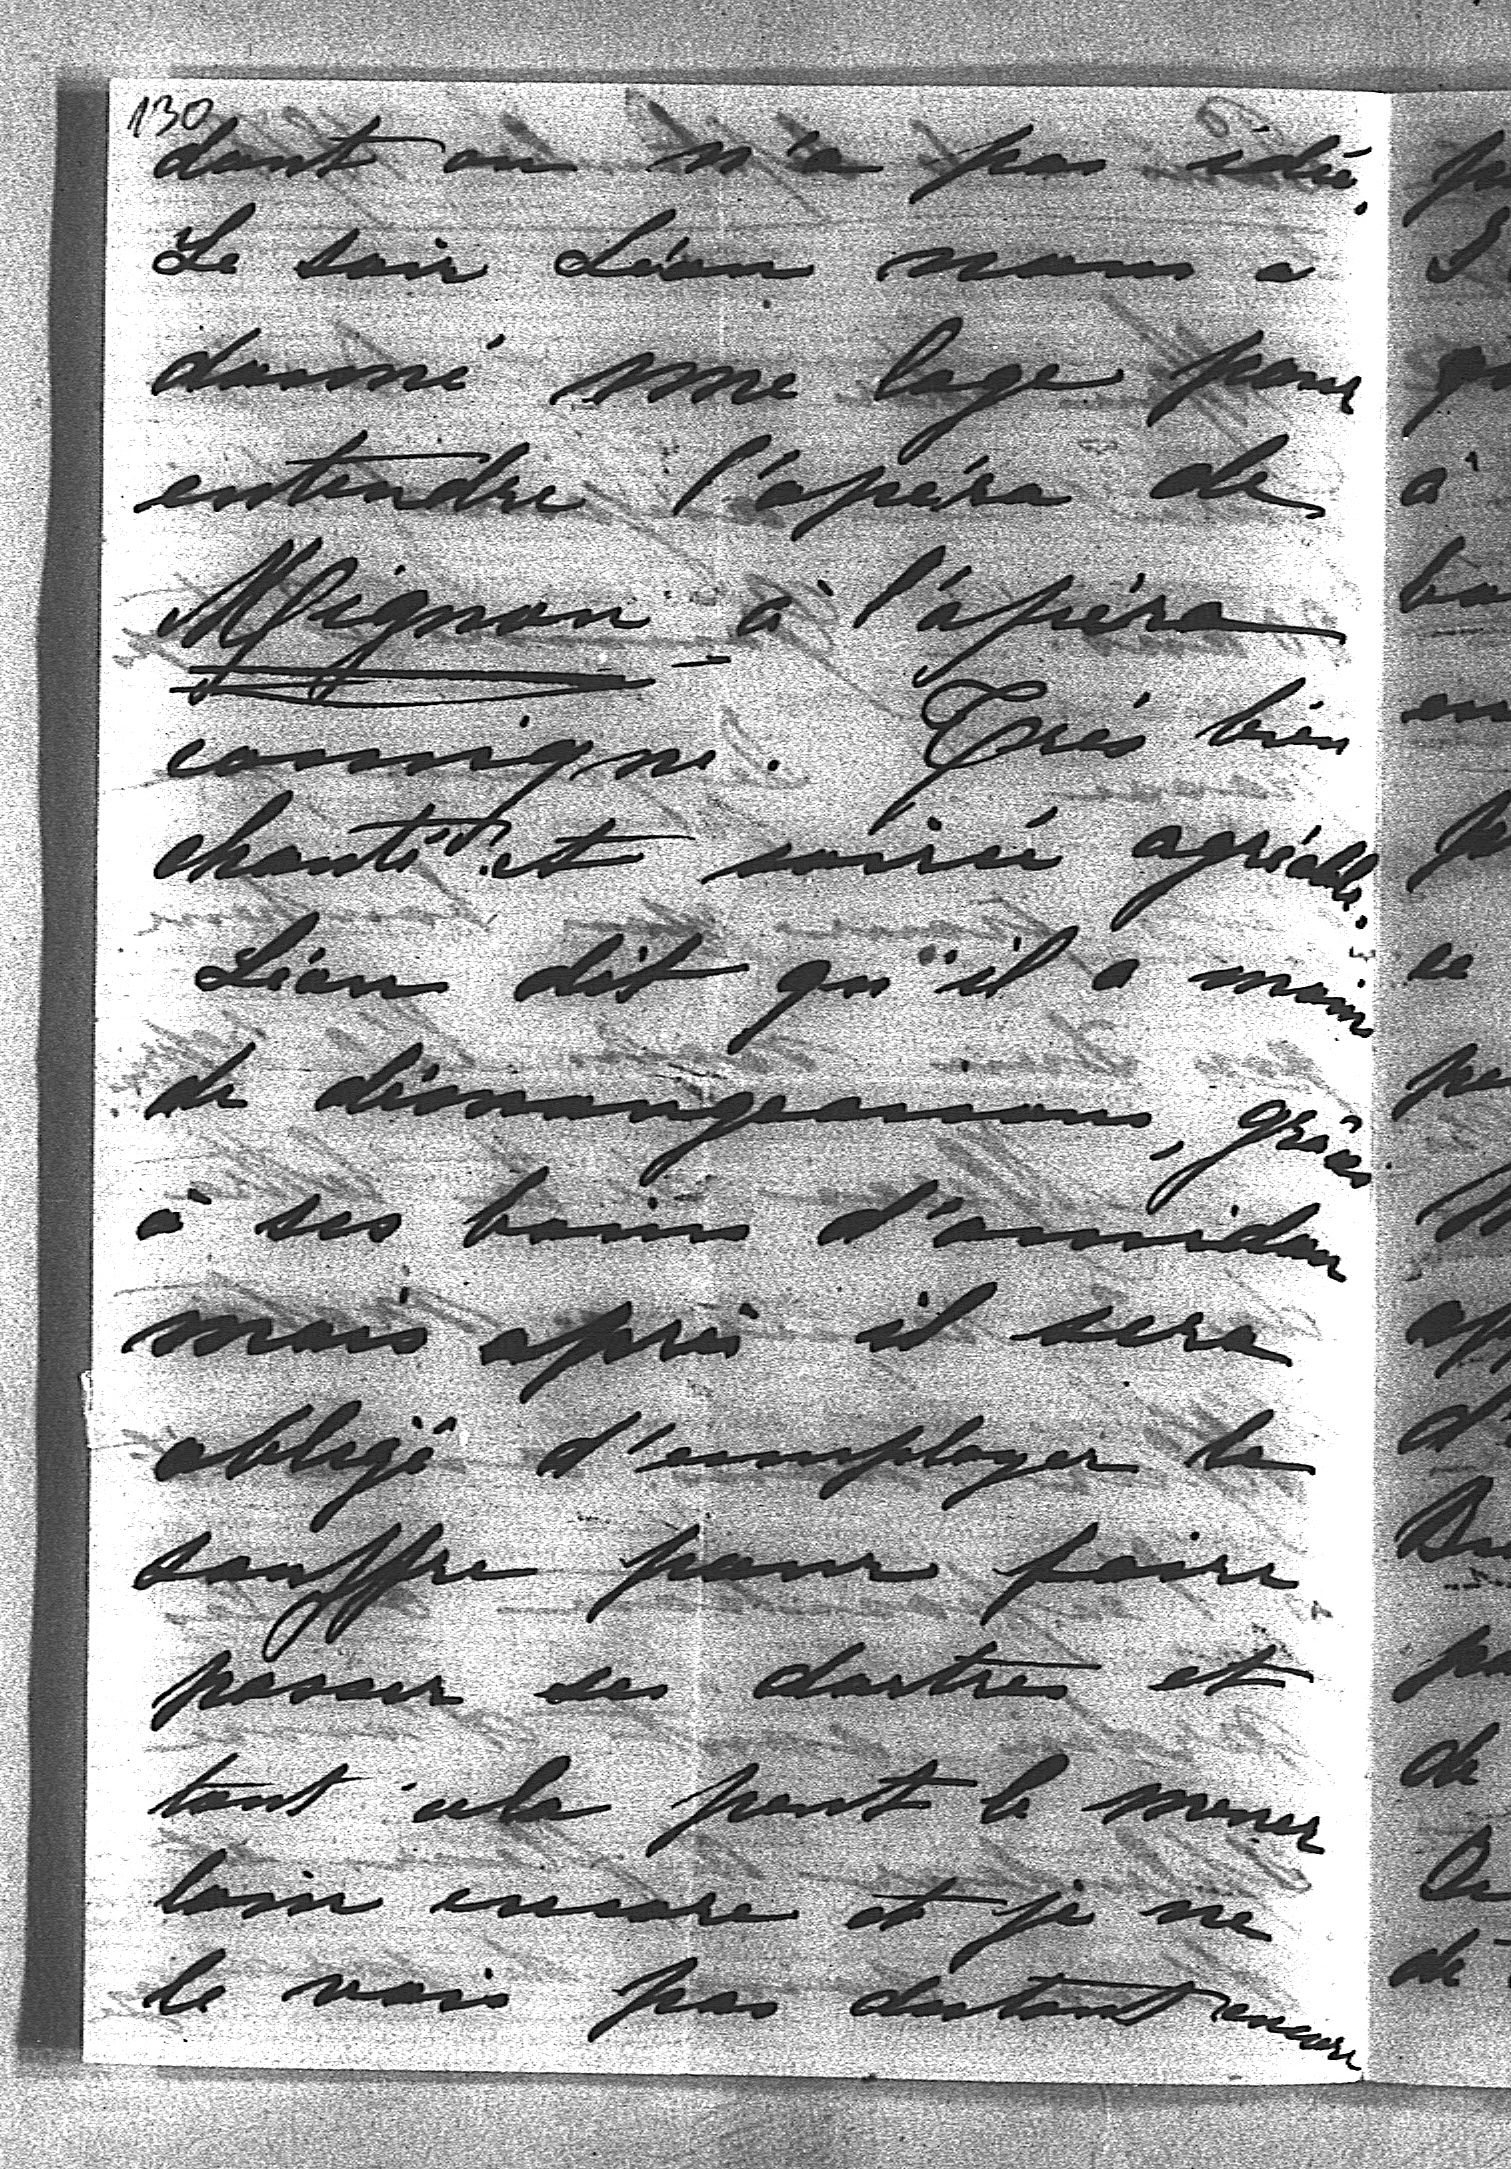 130
dont on n'a pas idée.
Le soir Léon nous a
donné une loge pour
entendre l'opéra de
Mignon à l'opéra
comique. Très bien
chanté et soirée agréable.
Léon dit qu'il a moins
de démangeaisons, grâces
à ses bains d'amidon
mais après il sera
obligé d'employer le
souffre pour faire
passer ses dartres et
tout cela peut le mener
loin encore et je ne
le vois pas partant encore